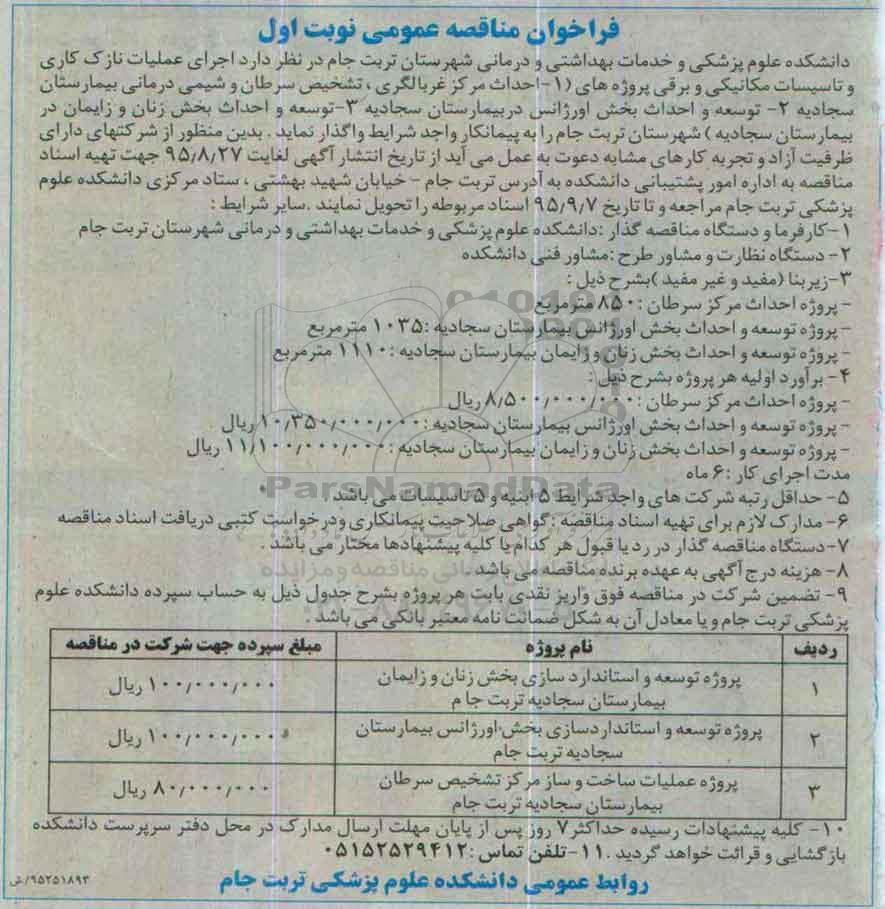 فراخوان مناقصه عمومی نوبت اول
دانشکده علوم پزشکی و خدمات بهداشتی و درمانی شهرستان تربت جام در نظر دارد اجرای عملیات نازک کاری
و تاسیسات مکانیکی و برقی پروژه های (۱-احداث مرکز غربالگری ، تشخیص سرطان و شیمی درمانی بیمارستان
سجادیه ۲- توسعه و احداث بخش اورژانس دربیمارستان سجادیه ۳-توسعه و احداث بخش زنان و زایمان در
بیمارستان سجادیه ) شهرستان تربت جام را به پیمانکار واجد شرایط واگذار نماید . بدین منظور از شرکتهای دارای
ظرفیت آزاد و تجربه کارهای مشابه دعوت به عمل می آید از تاریخ انتشار آگهی لغایت ۹۵٫۸٫۲۷ جهت تهیه اسناد
مناقصه به اداره امور پشتیبانی دانشکده به آدرس تربت جام – خیابان شهید بهشتی ، ستاد مرکزی دانشکده علوم
پزشکی تربت جام مراجعه و تا تاریخ ۹۵٫۹٫۷ اسناد مربوطه را تحویل نمایند .سایر شرایط :
۱-کارفرما و دستگاه مناقصه گذار :دانشکده علوم پزشکی و خدمات بهداشتی و درمانی شهرستان تربت جام
۲- دستگاه نظارت و مشاور طرح :مشاور فنی دانشکده
۳-زیربنا (مفید و غیر مفید )بشرح ذیل :
– پروژه احداث مرکز سرطان : ۸۵۰ مترمربع
– پروژه توسعه و احداث بخش اورژانس بیمارستان سجادیه : ۱۰۳۵ مترمربع
– پروژه توسعه و احداث بخش زنان و زایمان بیمارستان سجادیه : ۱۱۱۰ مترمربع
۴- برآورد اولیه هر پروژه بشرح ذیل :
– پروژه احداث مرکز سرطان : ۸٫۵۰۰٫۰۰۰٫۰۰۰ ریال
– پروژه توسعه و احداث بخش اورژانس بیمارستان سجادیه : ۱۰٫۳۵۰٫۰۰۰٫۰۰۰ ریال
– پروژه توسعه و احداث بخش زنان و زایمان بیمارستان سجادیه : ۱۱٫۱۰۰٫۰۰۰٫۰۰۰ ریال
مدت اجرای کار : ۶ ماه
ParsNamadData
۵- حداقل رتبه شرکت های واجد شرایط ۵ ابنیه و ۵ تاسیسات می باشد .
۶- مدارک لازم برای تهیه اسناد مناقصه :گواهی صلاحیت پیمانکاری ودرخواست کتبی دریافت اسناد مناقصه
۷-دستگاه مناقصه گذار در رد یا قبول هر کدام یا کلیه پیشنهادها مختار می باشد .
۸- هزینه درج آگهی به عهده برنده مناقصه می باشد .
۹- تضمین شرکت در مناقصه فوق واریز نقدی بابت هر پروژه بشرح جدول ذیل به حساب سپرده دانشکده علوم
پزشکی تربت جام و یا معادل آن به شکل ضمانت نامه معتبر بانکی می باشد .
ردیف نام پروژه مبلغ سپرده جهت شرکت در مناقصه
۱ پروژه توسعه و استاندارد سازی بخش زنان و زایمان بیمارستان سجادیه تربت جام ۱۰۰٫۰۰۰٫۰۰۰ ریال
۲ پروژه توسعه و استانداردسازی بخش اورژانس بیمارستان سجادیه تربت جام ۱۰۰٫۰۰۰٫۰۰۰ ریال
۳ پروژه عملیات ساخت و ساز مرکز تشخیص سرطان بیمارستان سجادیه تربت جام ۸۰٫۰۰۰٫۰۰۰ ریال
۱۰- کلیه پیشنهادات رسیده حداکثر۷ روز پس از پایان مهلت ارسال مدارک در محل دفتر سرپرست دانشکده
بازگشایی و قرائت خواهد گردید .۱۱-تلفن تماس :۰۵۱۵۲۵۲۹۴۱۲
روابط عمومی دانشکده علوم پزشکی تربت جام
۹۵۲۵۱۸۹۳/ش